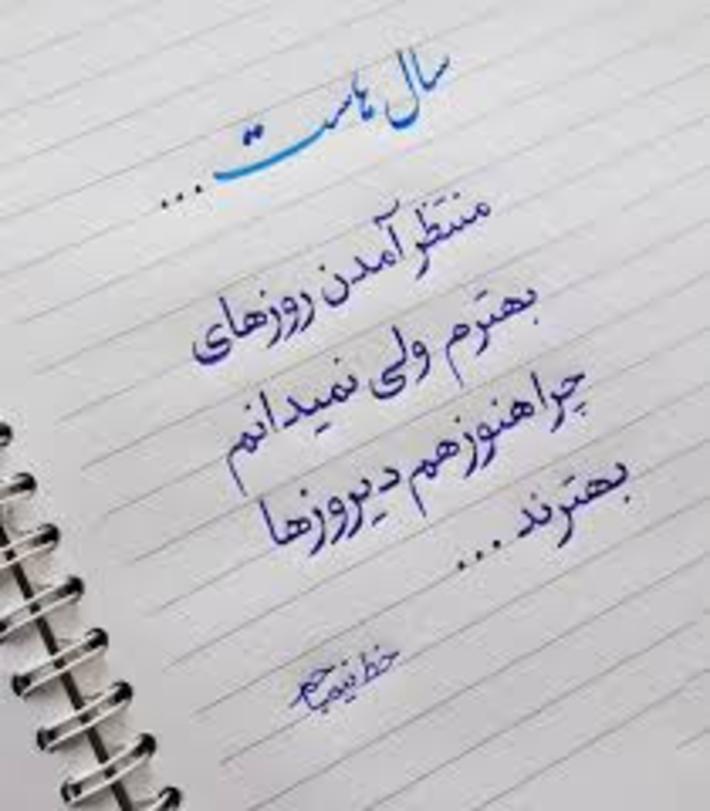 سال هاست...
منتظر آمدن روزهای
بهترم ولی نمیدانم
چرا هنوز هم دیروزها
بهترند...
خط نیمچم